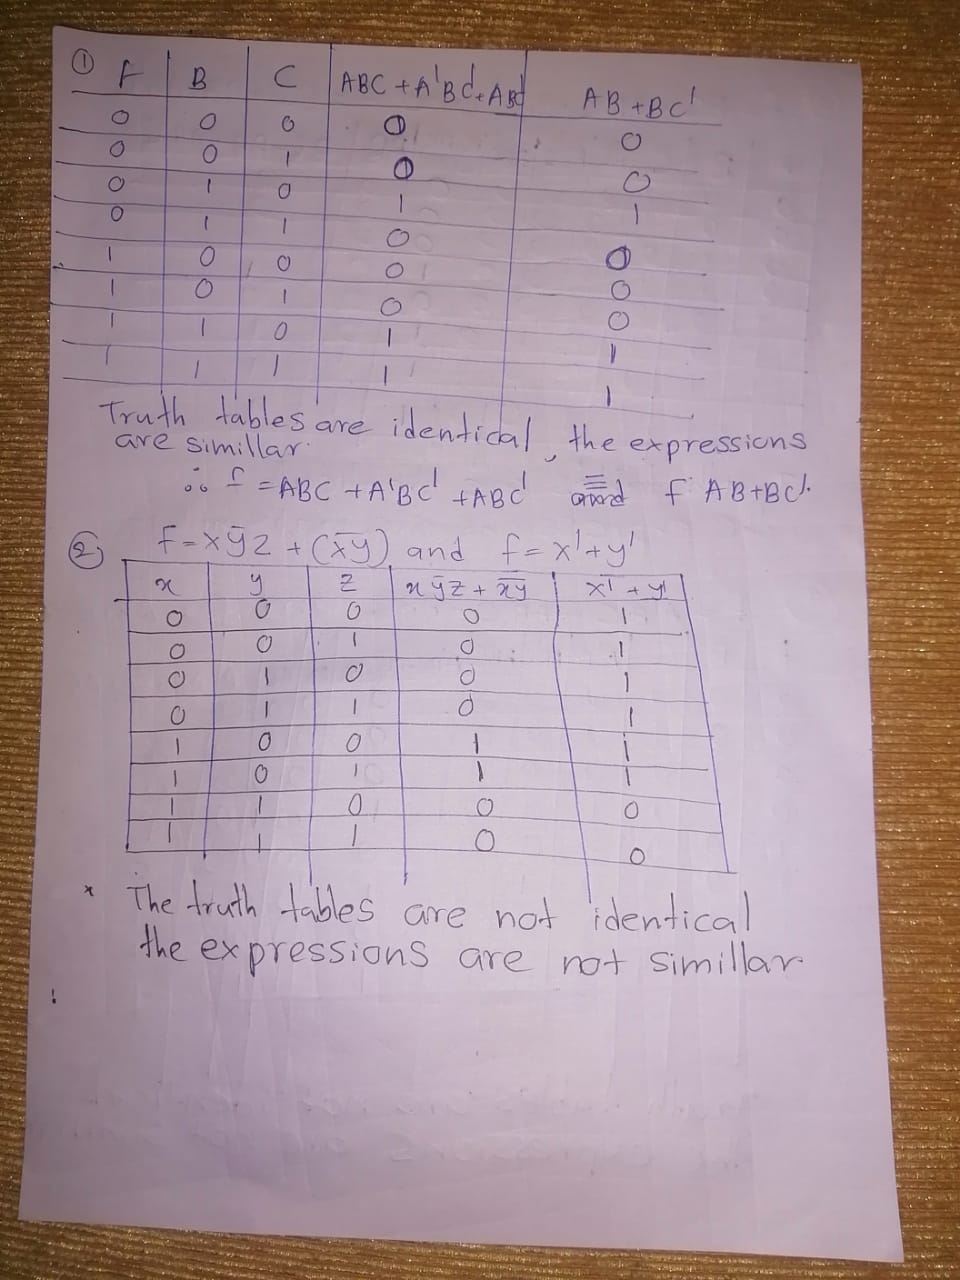 ① F B C ABC + A'BC' + ABC' AB + BC'
0 0 0 0 0
0 0 1 0 0
0 1 0 1 1
0 1 1 0 0
1 0 0 0 0
1 0 1 0 0
1 1 0 1 1
1 1 1 1 1
Truth tables are identical, the expressions
are simillar.
∴ f = ABC + A'BC' + ABC' ≡ f AB+BC'.
② F = xȳz + (x̅y̅) and f = x'+y'
x y z x ȳz + x̅y̅ x' + y'
0 0 0 0 1
0 0 1 0 1
0 1 0 0 1
0 1 1 0 1
1 0 0 1 1
1 0 1 1 1
1 1 0 0 0
1 1 1 0 0
* The truth tables are not identical
the expressions are not simillar